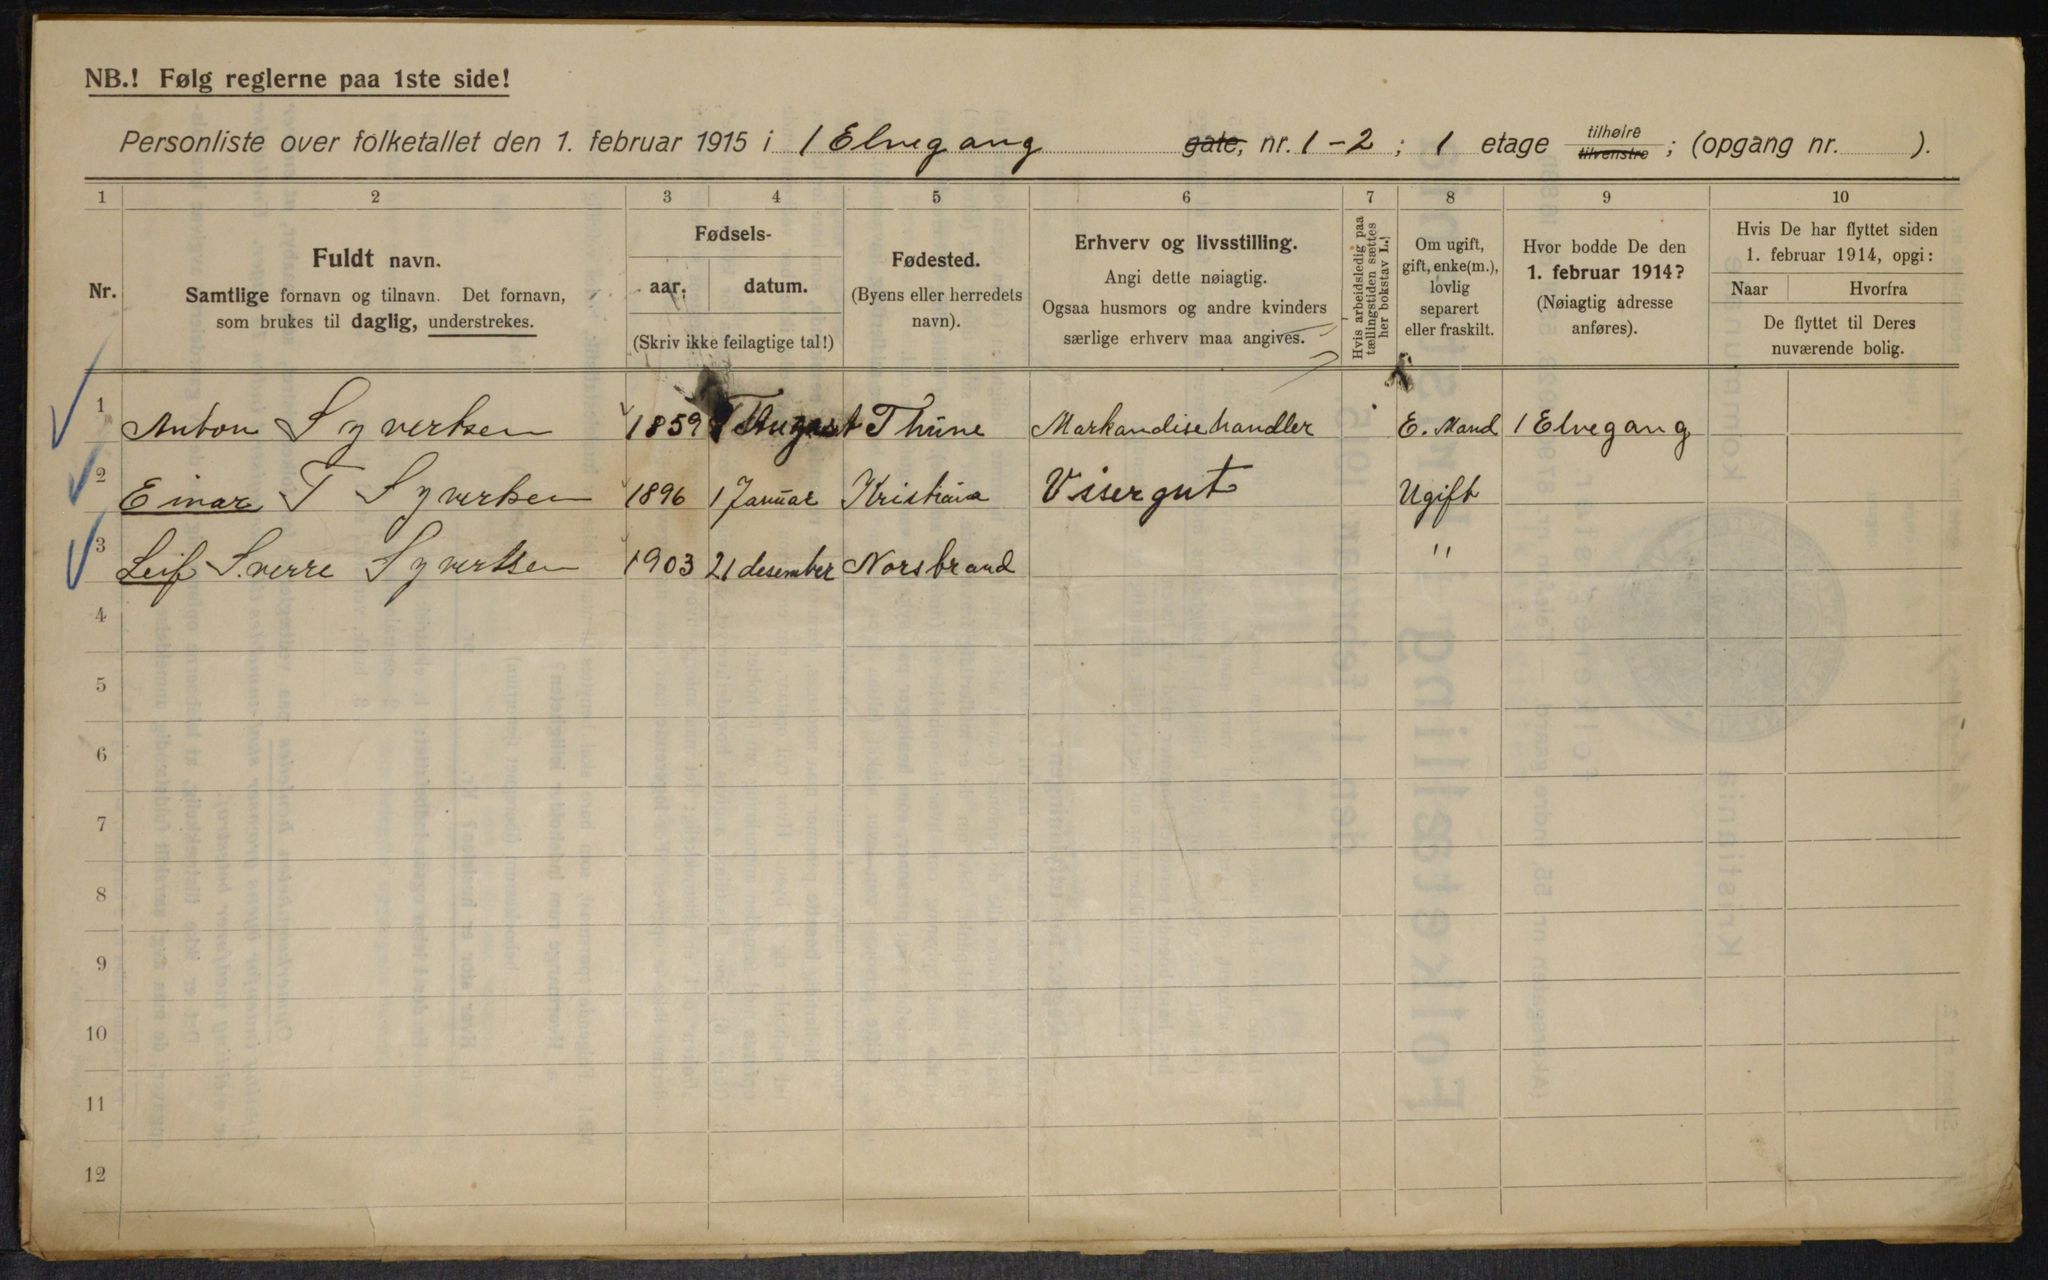 NB.! Følg reglerne paa 1ste side!
Personliste over folketallet den 1. februar 1915 i 1 Elvegang gate, nr. 1-2 ; 1 etage tilhøire tilvenstre ; (opgang nr. ).
1 2 3 4 5 6 7 8 9 10
Nr.
Fuldt navn.
Samtlige fornavn og tilnavn. Det fornavn,
som brukes til daglig, understrekes.
Fødsels-
aar. datum.
(Skriv ikke feilagtige tal!)
Fødested.
(Byens eller herredets
navn).
Erhverv og livsstilling.
Angi dette nøiagtig.
Ogsaa husmors og andre kvinders
særlige erhverv maa angives.
Hvis arbeidsledig paa
tællingstiden sættes
her bokstav L.!
Om ugift,
gift, enke(m.),
lovlig
separert
eller fraskilt.
Hvor bodde De den
1. februar 1914?
(Nøiagtig adresse
anføres).
Hvis De har flyttet siden
1. februar 1914, opgi:
Naar Hvorfra
De flyttet til Deres
nuværende bolig.
1 Anton Syvertsen 1859 August Thune Markandisehandler E. Mand 1 Elvegang
2 Einar T Syvertsen 1896 1 Januar Kristiania Vissergut Ugift
3 Leif Sverre Syvertsen 1903 21 desember Norsbrand "
4
5
6
7
8
9
10
11
12